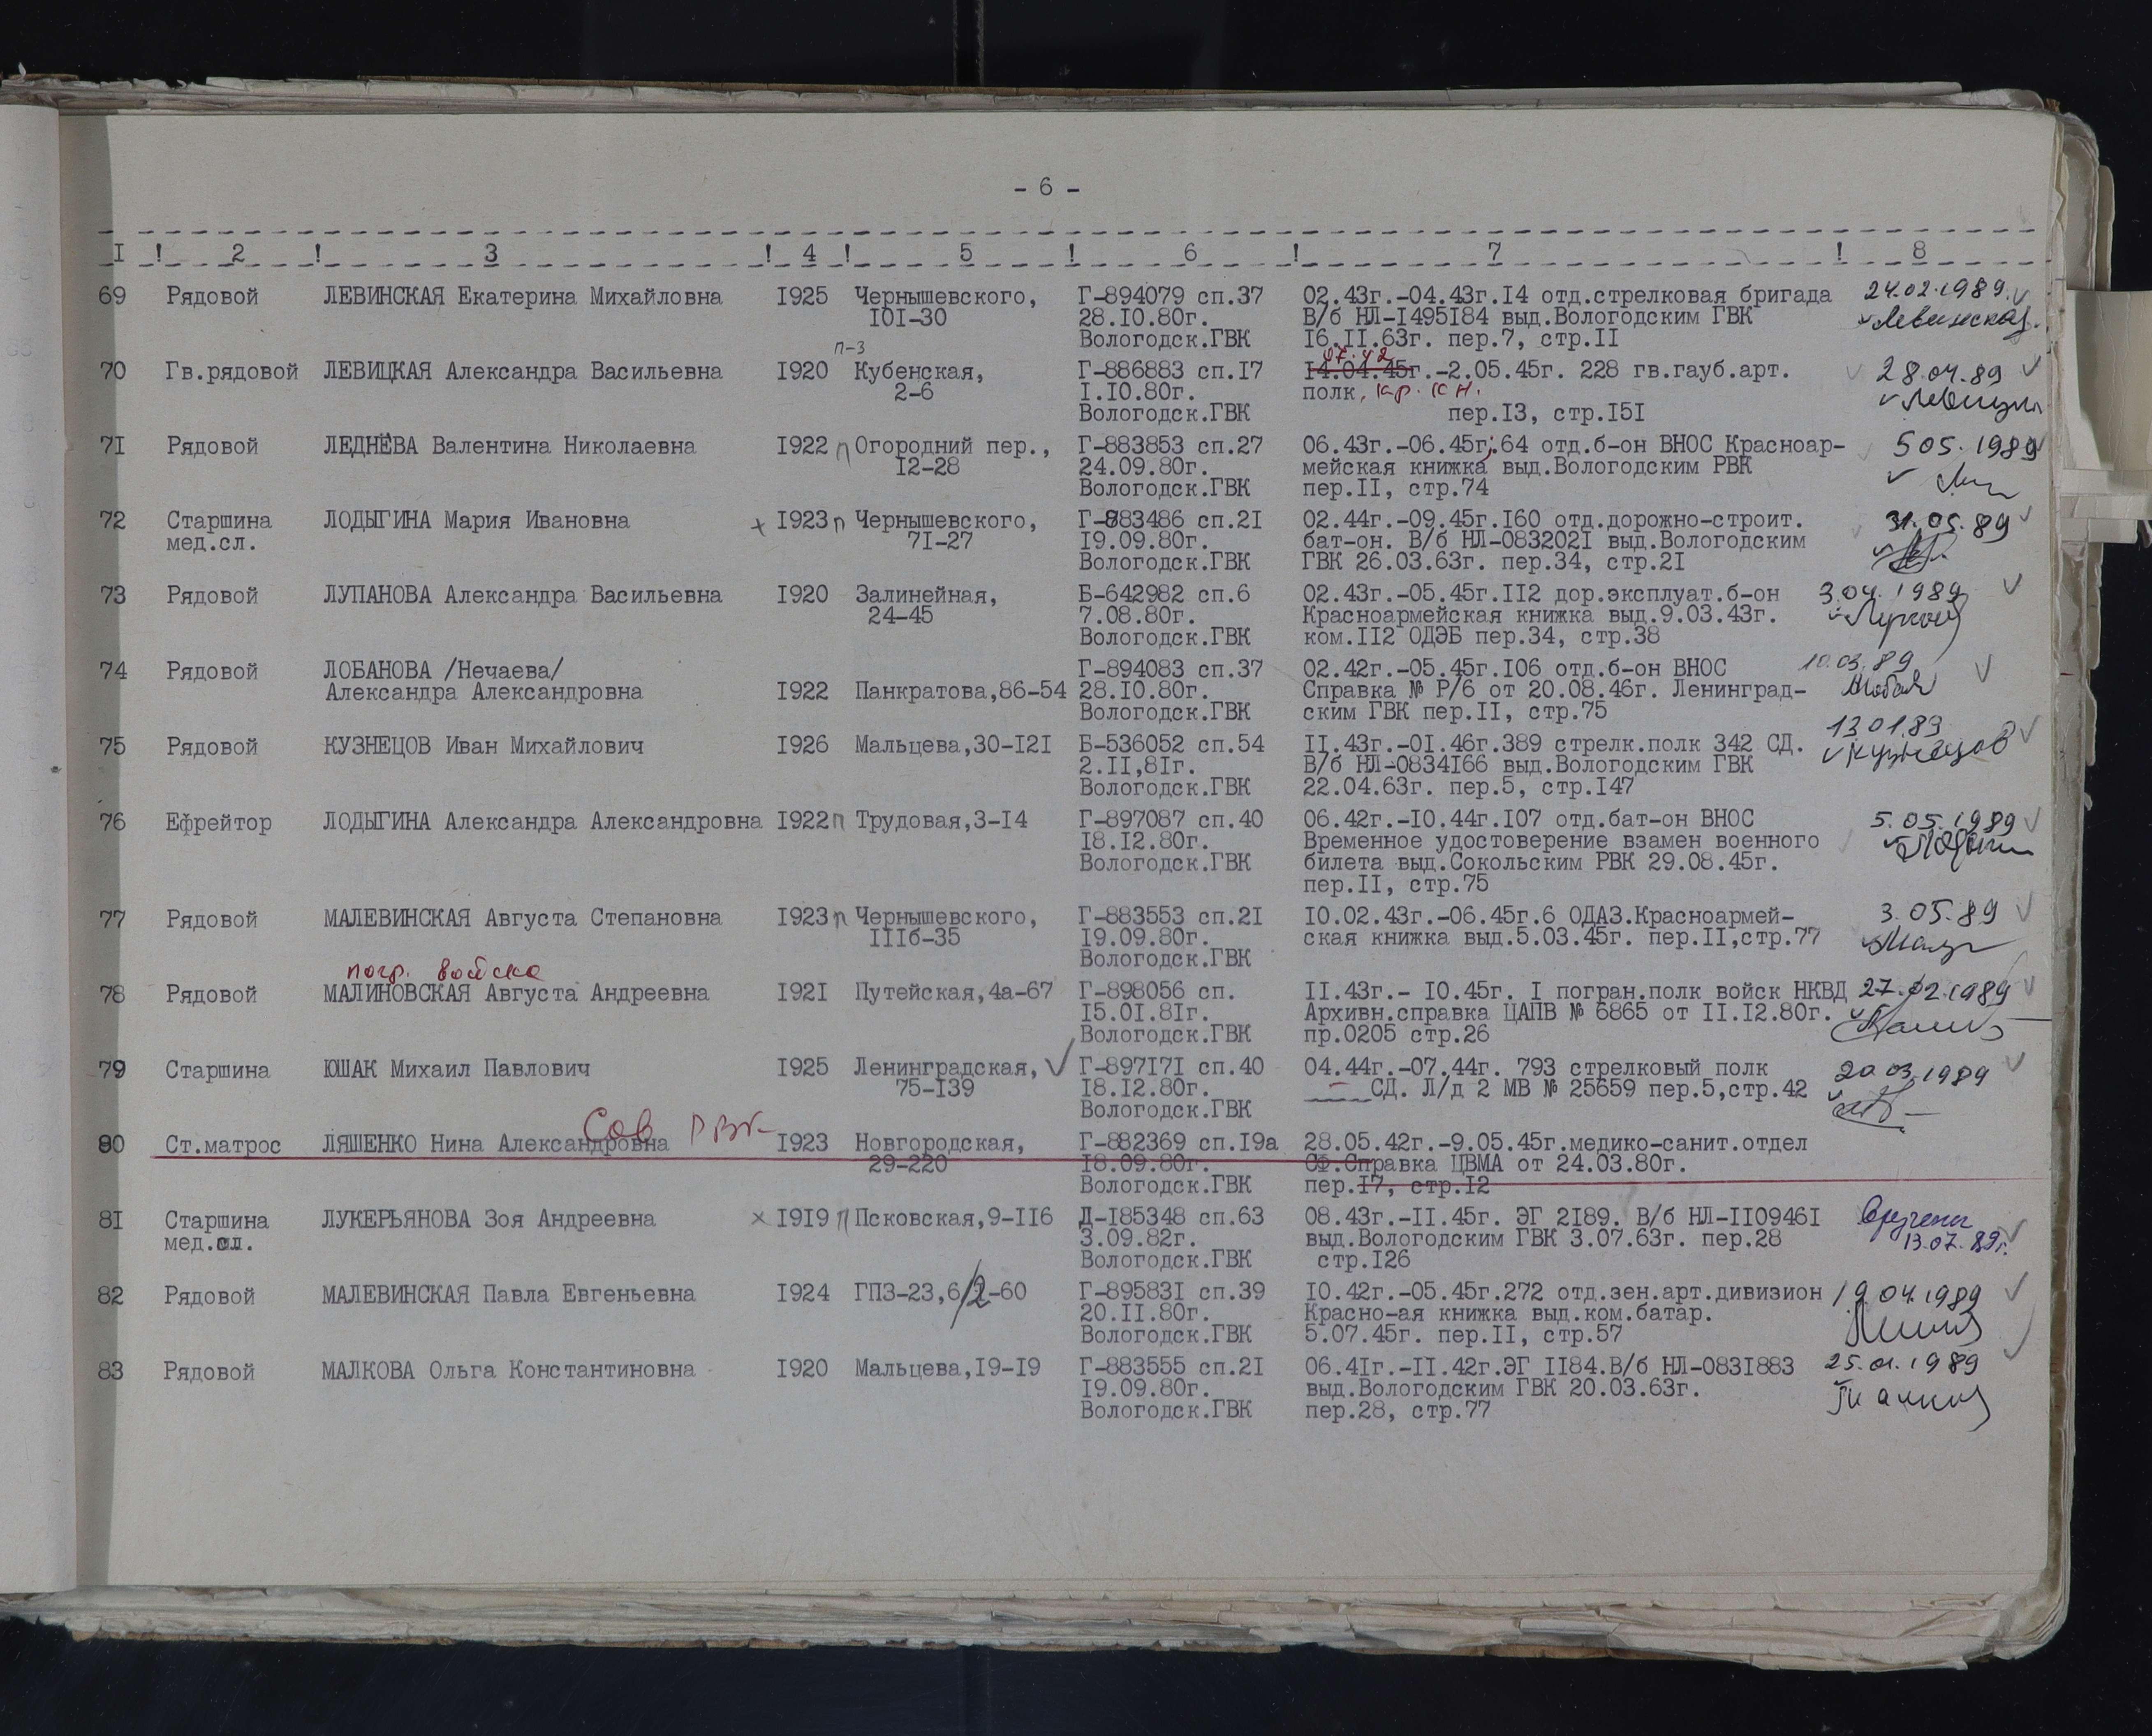 - 6 -
I ! 2 ! 3 ! 4 ! 5 ! 6 ! 7 ! 8
69 Рядовой ЛЕВИНСКАЯ Екатерина Михайловна I925 Чернышевского, Г-894079 сп.37 02.43г.-04.43г.I4 отд.стрелковая бригада 24.02.1989.
I0I-30 28.I0.80г. В/б НЛ-I495I84 выд.Вологодским ГВК Левинская
Вологодск.ГВК I6.II.63г. пер.7, стр.II
п-3 07.42
70 Гв.рядовой ЛЕВИЦКАЯ Александра Васильевна I920 Кубенская, Г-886883 сп.I7 I4.04.45г.-2.05.45г. 228 гв.гауб.арт. 28.04.89
2-6 I.I0.80г. полк, кр. кн.
Вологодск.ГВК пер.I3, стр.I5I
7I Рядовой ЛЕДНЁВА Валентина Николаевна I922 п Огородний пер., Г-883853 сп.27 06.43г.-06.45г.64 отд.б-он ВНОС Красноар- 5 05. 1989
I2-28 24.09.80г. мейская книжка выд.Вологодским РВК
Вологодск.ГВК пер.II, стр.74
72 Старшина ЛОДЫГИНА Мария Ивановна + I923 п Чернышевского, Г-883486 сп.2I 02.44г.-09.45г.I60 отд.дорожно-строит. 31.05.89
мед.сл. 7I-27 I9.09.80г. бат-он. В/б НЛ-083202I выд.Вологодским
Вологодск.ГВК ГВК 26.03.63г. пер.34, стр.2I
73 Рядовой ЛУПАНОВА Александра Васильевна I920 Залинейная, Б-642982 сп.6 02.43г.-05.45г.II2 дор.эксплуат.б-он 3.04.1989
24-45 7.08.80г. Красноармейская книжка выд.9.03.43г.
Вологодск.ГВК ком.II2 ОДЭБ пер.34, стр.38
74 Рядовой ЛОБАНОВА /Нечаева/ Г-894083 сп.37 02.42г.-05.45г.I06 отд.б-он ВНОС 10.03.89
Александра Александровна I922 Панкратова,86-54 28.I0.80г. Справка № Р/6 от 20.08.46г. Ленинград-
Вологодск.ГВК ским ГВК пер.II, стр.75
75 Рядовой КУЗНЕЦОВ Иван Михайлович I926 Мальцева,30-I2I Б-536052 сп.54 II.43г.-0I.46г.389 стрелк.полк 342 СД. 13.01.89
2.II,8Iг. В/б НЛ-0834I66 выд.Вологодским ГВК Кузнецов
Вологодск.ГВК 22.04.63г. пер.5, стр.I47
76 Ефрейтор ЛОДЫГИНА Александра Александровна I922 п Трудовая,3-I4 Г-897087 сп.40 06.42г.-I0.44г.I07 отд.бат-он ВНОС 5.05.1989
I8.I2.80г. Временное удостоверение взамен военного
Вологодск.ГВК билета выд.Сокольским РВК 29.08.45г.
пер.II, стр.75
77 Рядовой МАЛЕВИНСКАЯ Августа Степановна I923 п Чернышевского, Г-883553 сп.2I I0.02.43г.-06.45г.6 ОДАЗ.Красноармей- 3.05.89
IIIб-35 I9.09.80г. ская книжка выд.5.03.45г. пер.II,стр.77
Вологодск.ГВК
погр. войска
78 Рядовой МАЛИНОВСКАЯ Августа Андреевна I92I Путейская,4а-67 Г-898056 сп. II.43г.- I0.45г. I погран.полк войск НКВД 27.02.1989
I5.0I.8Iг. Архивн.справка ЦАПВ № 6865 от II.I2.80г.
Вологодск.ГВК пр.0205 стр.26
79 Старшина ЮШАК Михаил Павлович I925 Ленинградская, Г-897I7I сп.40 04.44г.-07.44г. 793 стрелковый полк 20.03.1989
75-I39 I8.I2.80г. ____СД. Л/д 2 МВ № 25659 пер.5,стр.42
Вологодск.ГВК
Сов РВК
80 Ст.матрос ЛЯШЕНКО Нина Александровна I923 Новгородская, Г-882369 сп.I9а 28.05.42г.-9.05.45г.медико-санит.отдел
29-220 I8.09.80г. СФ.Справка ЦВМА от 24.03.80г.
Вологодск.ГВК пер.I7, стр.I2
8I Старшина ЛУКЕРЬЯНОВА Зоя Андреевна × I9I9 п Псковская,9-II6 Д-I85348 сп.63 08.43г.-II.45г. ЭГ 2I89. В/б НЛ-II0946I Вручена
мед.сл. 3.09.82г. выд.Вологодским ГВК 3.07.63г. пер.28 13.07.89г.
Вологодск.ГВК стр.I26
82 Рядовой МАЛЕВИНСКАЯ Павла Евгеньевна I924 ГПЗ-23,6/2-60 Г-89583I сп.39 I0.42г.-05.45г.272 отд.зен.арт.дивизион 19.04.1989
20.II.80г. Красно-ая книжка выд.ком.батар.
Вологодск.ГВК 5.07.45г. пер.II, стр.57
83 Рядовой МАЛКОВА Ольга Константиновна I920 Мальцева,I9-I9 Г-883555 сп.2I 06.4Iг.-II.42г.ЭГ II84.В/б НЛ-083I883 25.01.1989
I9.09.80г. выд.Вологодским ГВК 20.03.63г.
Вологодск.ГВК пер.28, стр.77